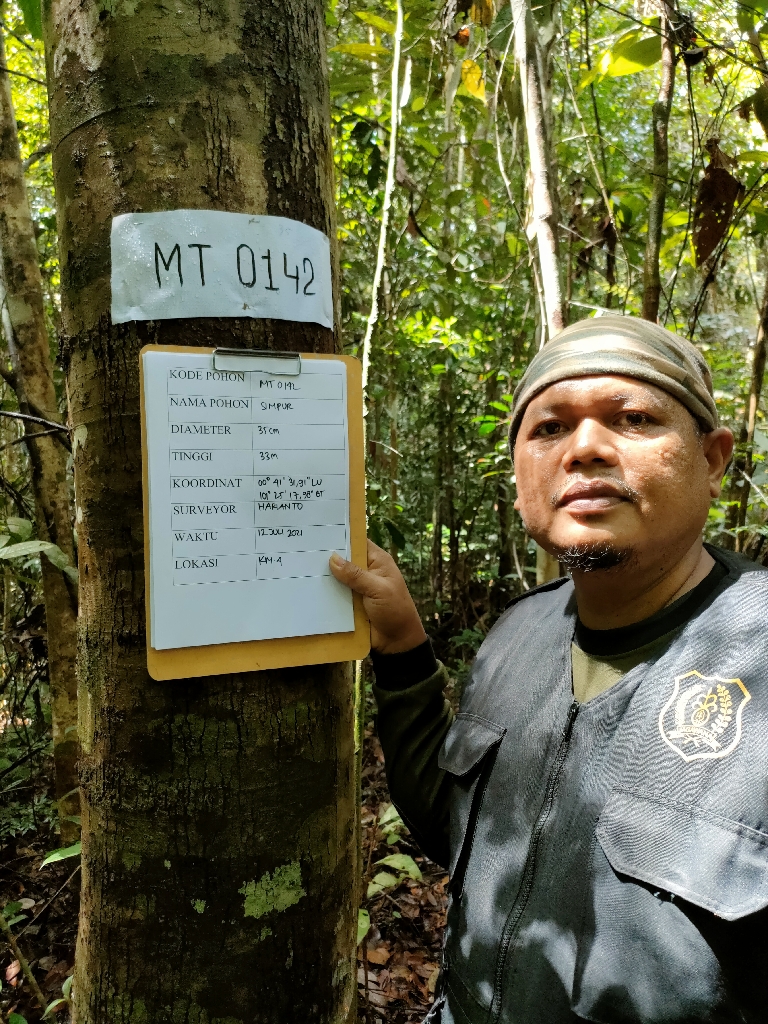 MT 0142
KODE POHON MT 0142
NAMA POHON SIMPUR
DIAMETER 35cm
TINGGI 33m
KOORDINAT 00° 41' 31,91" LU
101° 25' 17,98" BT
SURVEYOR HARIANTO
WAKTU 12 JULI 2021
LOKASI KM-4